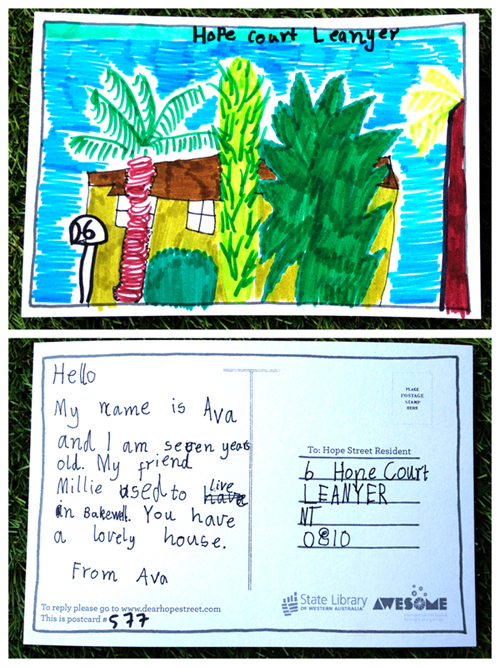 Hope court Leanyer
26
Hello
My name is Ava
and I am seven years
old. My friend
Millie used to live
in Bakewell. You have
a lovely house.
From Ava
To reply please go to www.dearhopestreet.com
This is postcard # 577
PLACE
POSTAGE
STAMP
HERE
To: Hope Street Resident
6 Hope Court
LEANYER
NT
0810
State Library
OF WESTERN AUSTRALIA
AWESOME